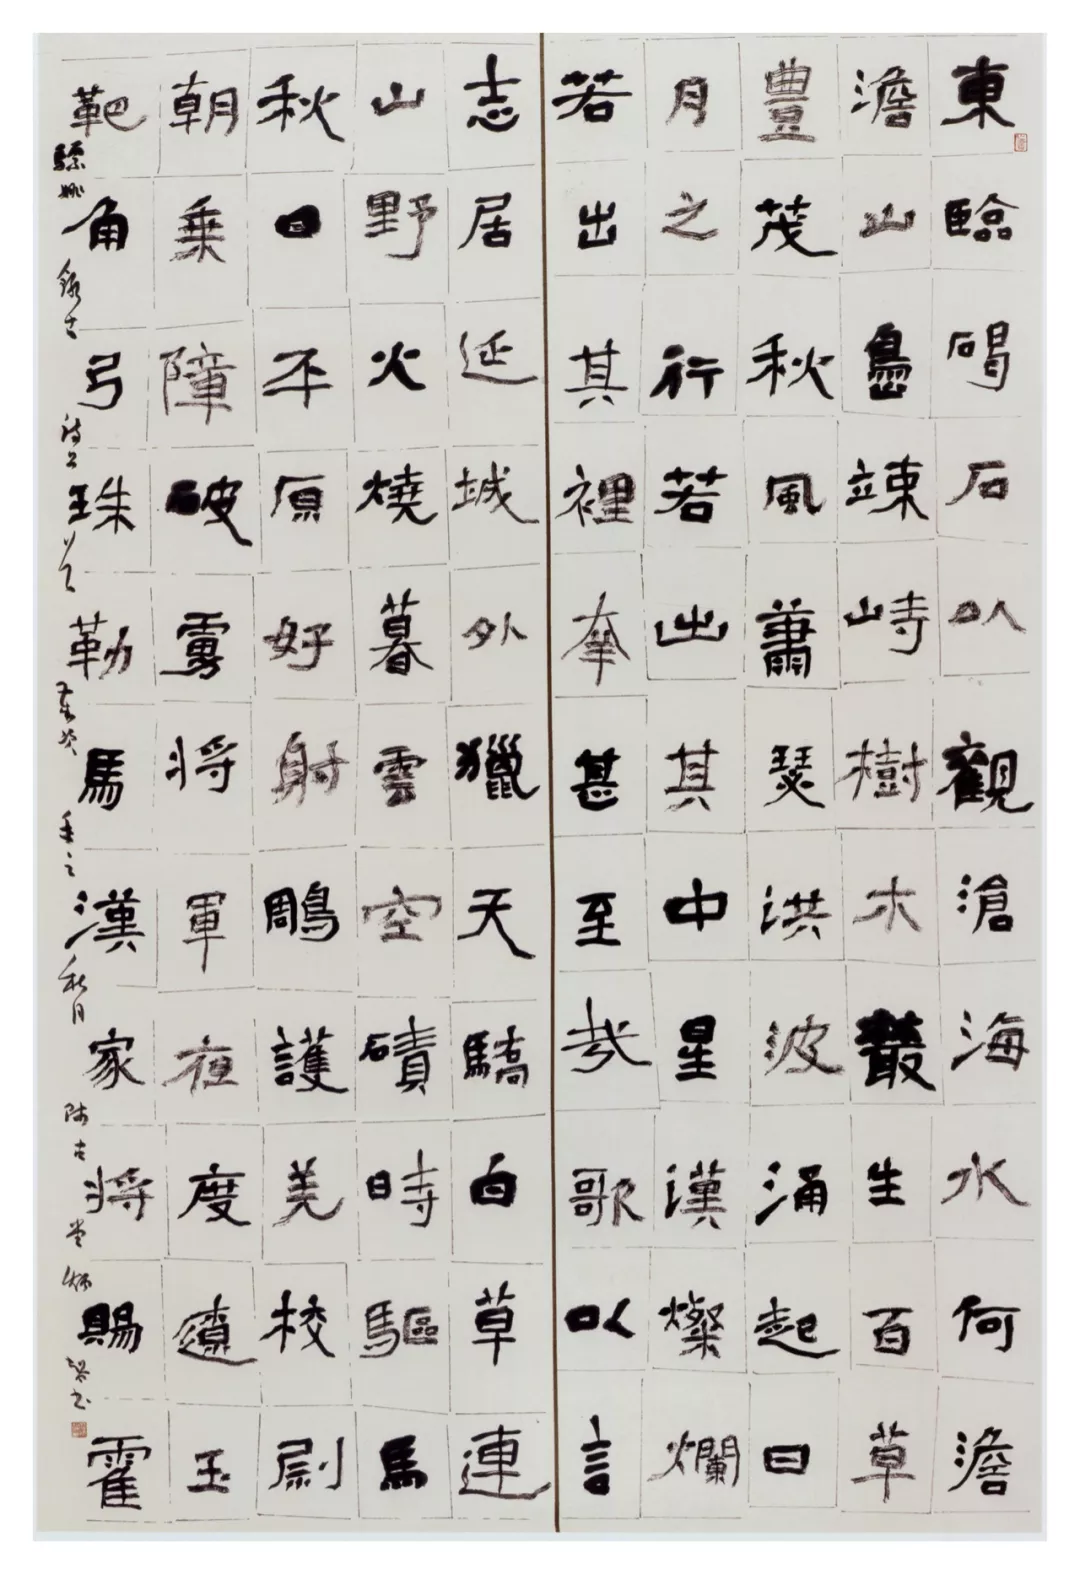 東臨碣石以觀滄海水何澹
澹山島竦峙樹木叢生百草
豐茂秋風蕭瑟洪波涌起日
月之行若出其中星漢燦爛
若出其裡幸甚至哉歌以言
志居延城外獵天驕白草連
山野火燒暮雲空磧時驅馬
秋日平原好射鵰護羌校尉
朝乘障破虜將軍夜度遼玉
靶角弓珠勒馬漢家將賜霍
驃姚 錄古詩二 秋月